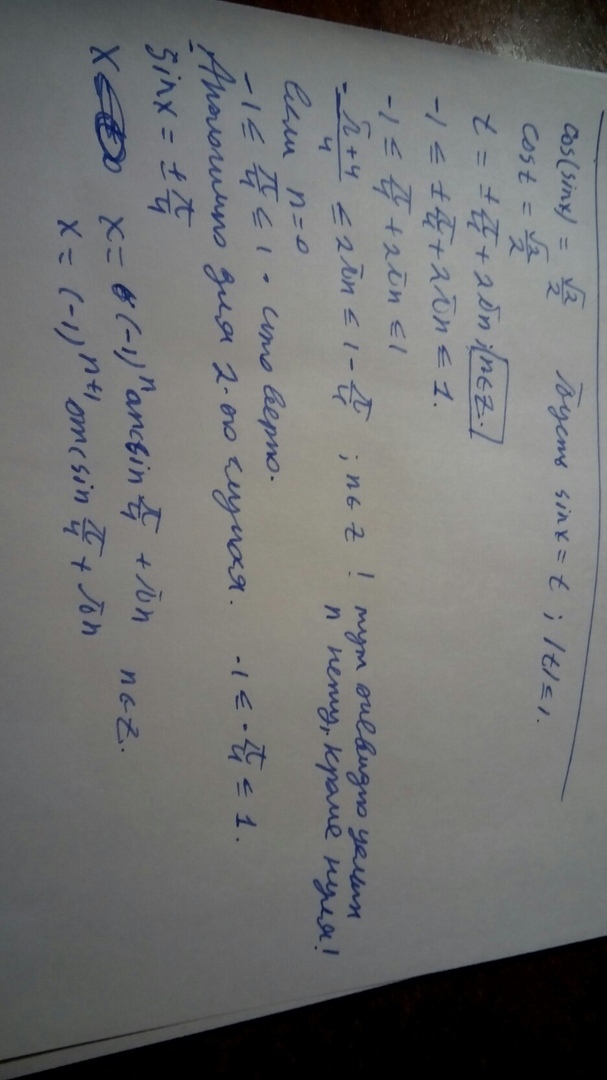 cos(sinx) = √2/2 Пусть sinx = t ; |t| ≤ 1.
cost = √2/2
t = ± π/4 + 2πn ; n∈Z.
-1 ≤ ± π/4 + 2πn ≤ 1.
-1 ≤ π/4 + 2πn ≤ 1
- π+4/4 ≤ 2πn ≤ 1 - π/4 ; n∈Z ! тут очевидно целых
n нету, кроме нуля!
Если n=0
-1 ≤ π/4 ≤ 1 - что верно.
Аналогично для 2-го случая. -1 ≤ - π/4 ≤ 1.
sinx = ± π/4
x x = (-1)^n arcsin π/4 + πn n∈Z.
x = (-1)^n+1 arcsin π/4 + πn